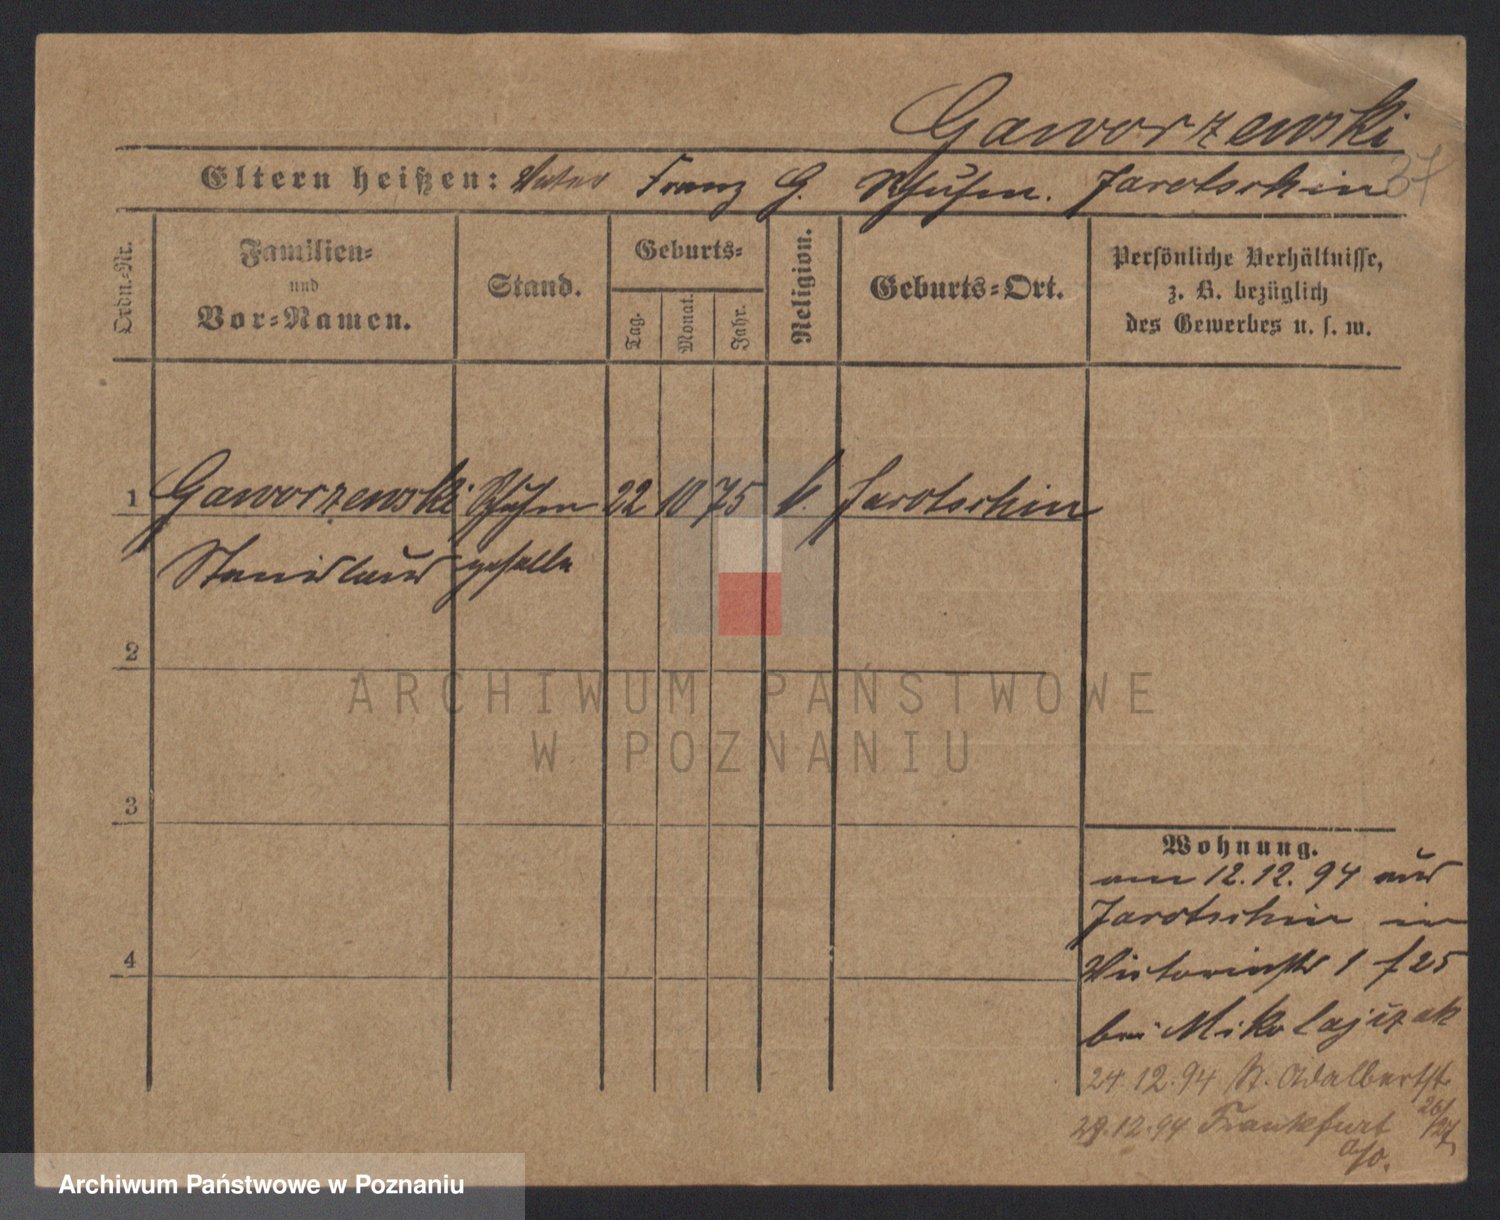 Gaworzewski
37
Eltern heißen: Vater Franz G. Schuhm. Jarotschin
Ordn.-Nr.
Familien-
und
Vor-Namen.
Stand.
Geburts-
Tag.
Monat.
Jahr.
Religion.
Geburts-Ort.
Persönliche Verhältnisse,
z. B. bezüglich
des Gewerbes u. s. w.
1 Gaworzewski Schuhm 22 10 75 k. Jarotschin
Stanislaus geselle
2
ARCHIWUM PAŃSTWOWE
W POZNANIU
3
Wohnung.
am 12.12.94 aus
Jarotschin in
Victoriastr 1 f 25
4
bei Mikolajczak
24 12.94 St. Adalbertstr
26/27
29.12.94 Frankfurt
a/o.
Archiwum Państwowe w Poznaniu